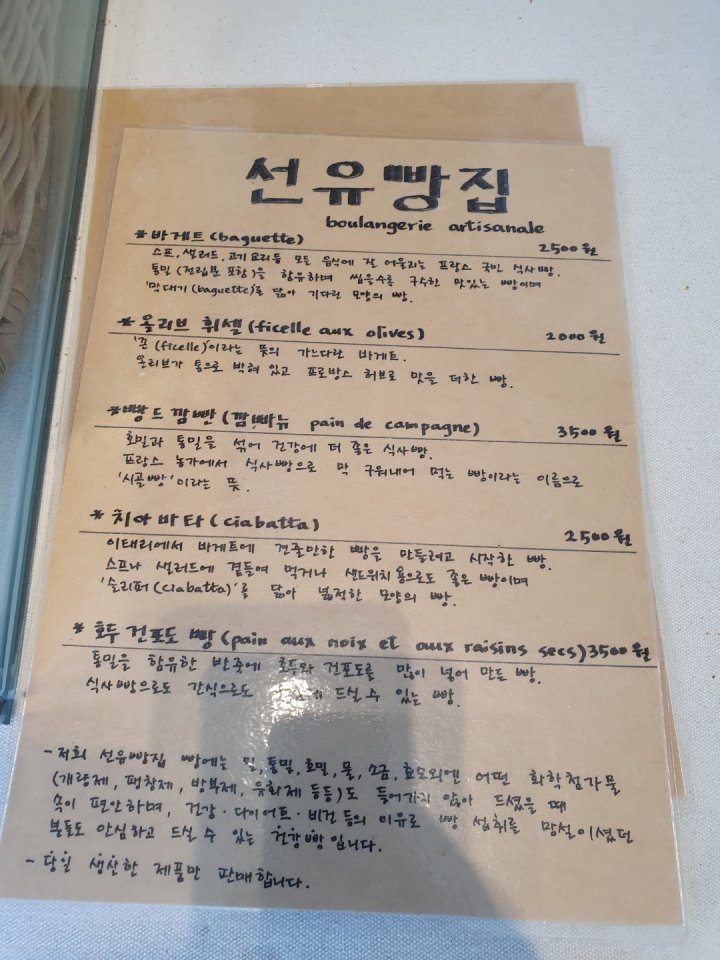 선유빵집
boulangerie artisanale
* 바게트 (baguette) 2500원
스프, 샐러드, 고기요리등 모든 음식에 잘 어울리는 프랑스 국민 식사빵.
통밀(전립분 포함)을 함유하며 씹을수록 구수한 맛있는 빵이며
'막대기(baguette)'를 닮아 기다란 모양의 빵.
* 올리브 휘셀 (ficelle aux olives) 2000원
'끈(ficelle)'이라는 뜻의 가느다란 바게트.
올리브가 통으로 박혀 있고 프로방스 허브로 맛을 더한 빵.
* 빵드깜빤 (깜빠뉴 pain de campagne) 3500원
호밀과 통밀을 섞어 건강에 더 좋은 식사빵.
프랑스 농가에서 식사빵으로 막 구워내어 먹는 빵이라는 이름으로
'시골빵'이라는 뜻.
* 치아바타 (ciabatta) 2500원
이태리에서 바게트에 견줄만한 빵을 만들려고 시작한 빵.
스프나 샐러드에 곁들여 먹거나 샌드위치용으로도 좋은 빵이며
'슬리퍼(ciabatta)'를 닮아 넓적한 모양의 빵.
* 호두 건포도 빵 (pain aux noix et aux raisins secs) 3500원
통밀을 함유한 반죽에 호두와 건포도를 많이 넣어 만든 빵.
식사빵으로도 간식으로도 드실 수 있는 빵.
- 저희 선유빵집 빵에는 밀, 통밀, 호밀, 물, 소금, 효모외엔 어떤 화학첨가물
(개량제, 팽창제, 방부제, 유화제 등등)도 들어가지 않아 드셨을 때
속이 편안하며, 건강·다이어트·비건 등의 이유로 빵 섭취를 망설이셨던
분들도 안심하고 드실 수 있는 건강빵입니다.
- 당일 생산한 제품만 판매합니다.